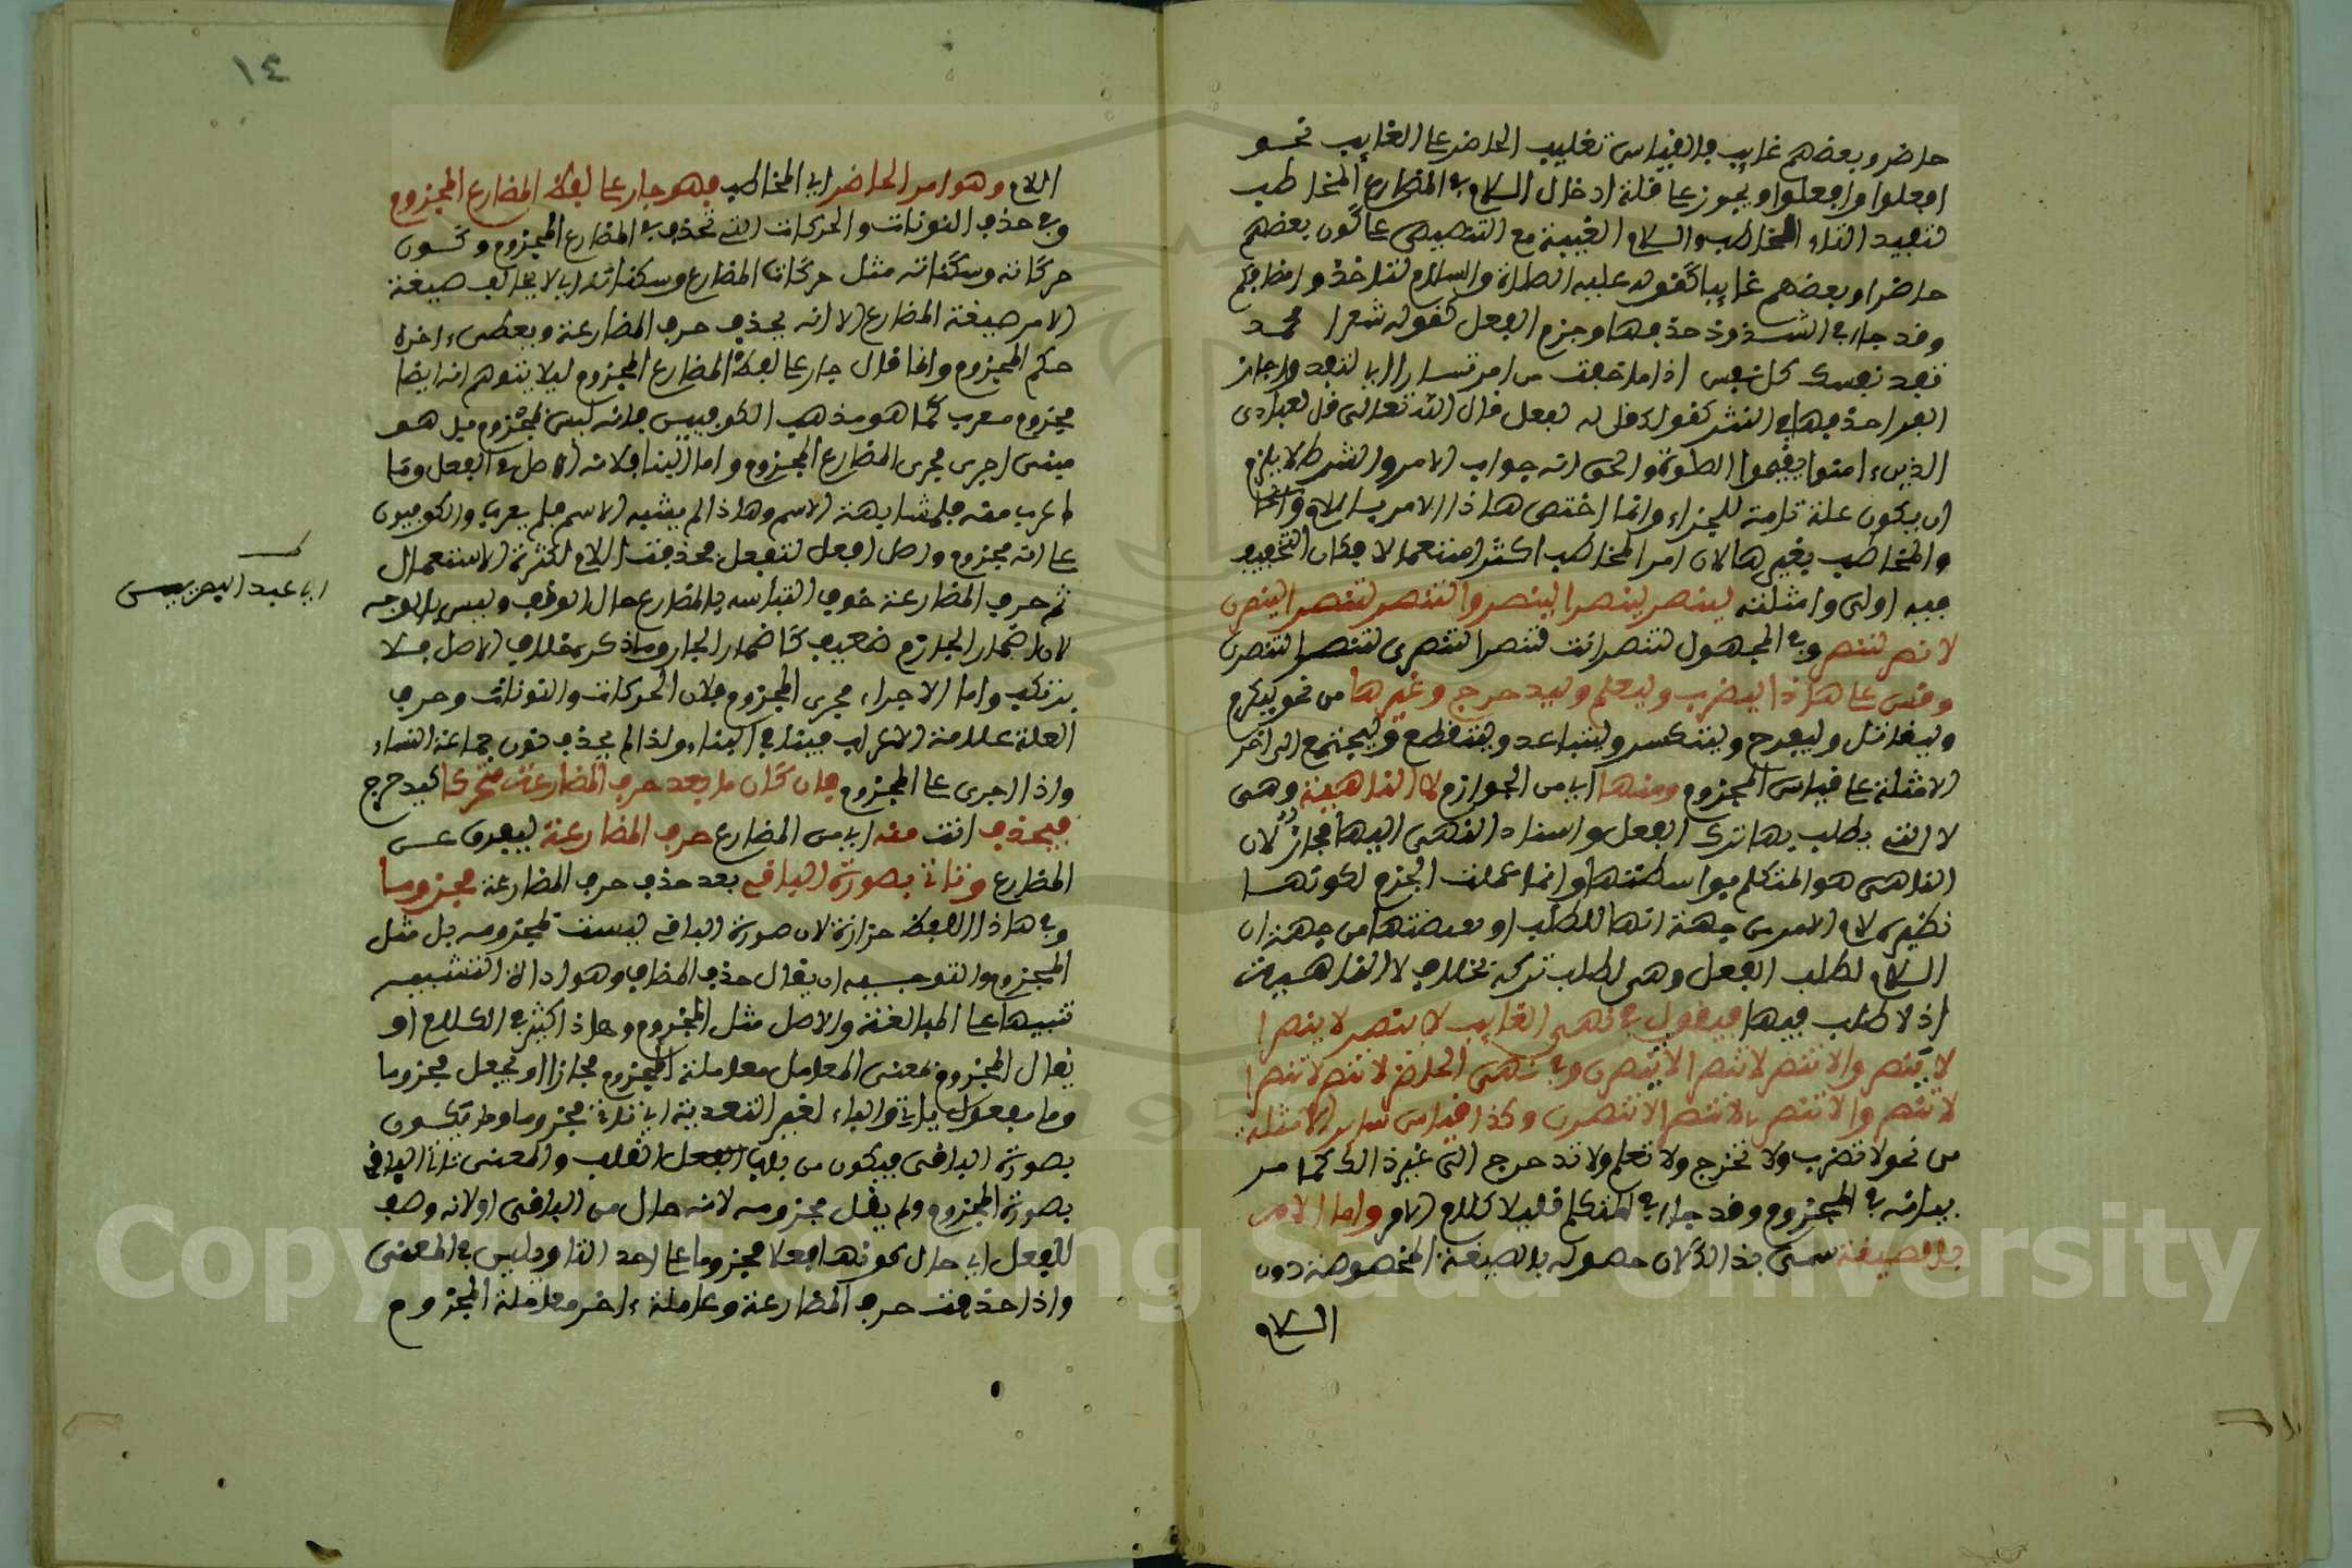 حاضر وبعضهم غايب فالقياس تغليب الحاضر على الغايب نحو
افعلوا وافعلوا ويجوز على قلة ادخال اللام في المضارع المخاطب
لتفيد التاء الخطاب واللام الغيبة مع التنصيص على كون بعضهم
حاضرا وبعضهم غايبا كقوله عليه الصلاة والسلام لتاخذوا مصافكم
وقد جاء في الشذوذ حذفها وجزم الفعل كقوله شعرا محمد
تفد نفسك كل نفس اذا ما خفت من امر تبارا اي لتفد واجاز
الفراء حذفها في النثر كقولك قل له يفعل قال الله تعالى قل لعبادي
الذين ءامنوا يقيموا الصلوة والحق انه جواب الامر والشرط لا يلزم
ان يكون علة تامة للجزاء وانما اختص هاذا الامر باللام
والمخاطب بغيرها لان امر المخاطب اكثر استعمالا فكان التخفيف
فيه اولى وامثلته لينصر لينصرا لينصروا لتنصر لتنصرا لينصرن
لانصر لننصر وفي المجهول لتنصر انت لتنصرا لتنصري لتنصرا لتنصرن
وقس على هاذا ليضرب وليعلم وليدحرج وغيرها من نحو ليكرم
وليقاتل وليفرح وليتكسر وليتباعد ولينقطع وليجتمع الى اخر
الامثلة على قياس المجزوم ومنها اي من الجوازم لا الناهية وهي
لا التي يطلب بها ترك الفعل واسناد النهي اليها مجاز لان
الناهي هو المتكلم بواسطتها وانما عملت الجزم لكونها
نظيرة لام الامر من جهة انها للطلب او نقيضتها من جهة ان
اللام لطلب الفعل وهي لطلب تركه بخلاف لا النافية
اذ لا طلب فيها فيقول في نهي الغايب لا ينصر لا ينصرا
لا ينصروا لا تنصر لا تنصرا لا ينصرن وفي نهي الحاضر لا تنصر لا تنصرا
لا تنصروا لا تنصري لا تنصرا لا تنصرن وكذا قياس ساير الامثلة
من نحو لا تضرب ولا تخرج ولا تعلم ولا تدحرج الى غير ذالك كما مر
بيانه في المجزوم وقد جاء في المتكلم قليلا كلام الامر واما الامر
بالصيغة سمي بذالك لان حصوله بالصيغة المخصوصة دون
اللام
١٤
اللام وهو امر الحاضر اي المخاطب فهو جار على لفظ المضارع المجزوم
وفي حذف النونات والحركات التي تحذف في المضارع المجزوم وكون
حركاته وسكناته مثل حركات المضارع وسكناته اي لا يخالف صيغة
الامر صيغة المضارع الا انه يحذف حرف المضارعة ويعطى ءاخره
حكم المجزوم وانما قال جار على لفظ المضارع المجزوم ليلا يتوهم انه ايضا
مجزوم معرب كما هو مذهب الكوفيين فانه ليس بمجزوم بل هو
مبني اجري مجرى المضارع المجزوم واما البناء فلانه الاصل في الفعل وما
اعرب منه فلمشابهة الاسم وهاذا لم يشبه الاسم فلم يعرب والكوفيون
على انه مجزوم واصل افعل لتفعل فحذفت اللام لكثرة الاستعمال
ثم حرف المضارعة خوف التباسه بالمضارع حال الوقف وليس بالوجه
لان اضمار الجازم ضعيف كاضمار الجار وما ذكره خلاف الاصل فلا
يرتكب واما الاجراء مجرى المجزوم فلان الحركات والنونات وحرف
العلة علامة الاعراب فينافي البناء ولذا لم يحذف نون جماعة النساء
واذا اجري على المجزوم فان كان ما بعد حرف المضارعة متحركا كيدحرج
فيحذف انت منه اي من المضارع حرف المضارعة ليفرق عن
المضارع وتاتي بصورة الباقي بعد حذف حرف المضارعة مجزوما
وفي هاذا اللفظ حزازة لان صورة الباقي ليست بمجزومه بل مثل
المجزوم والتوجيه ان يقال حذف المضاف وهو اداة التشبيه
تنبيها على المبالغة والاصل مثل المجزوم وهاذا كثير في الكلام او
يقال المجزوم بمعنى المعامل معاملة المجزوم مجازا او يجعل مجزوما
وما مفعول ياتي والباء لغير التعدية اي تاتي مجزوما ويكون
بصورة الباقي فيكون من باب القلب والمعنى تاتي الباقي
بصورة المجزوم ولم يقل مجزومه لانه حال من الباقي او لانه وصف
للفعل اي حال كونها فعلا مجزوما على احد التاويلين في المعنى
واذا حذفت حرف المضارعة وعاملت ءاخره معاملة المجزوم